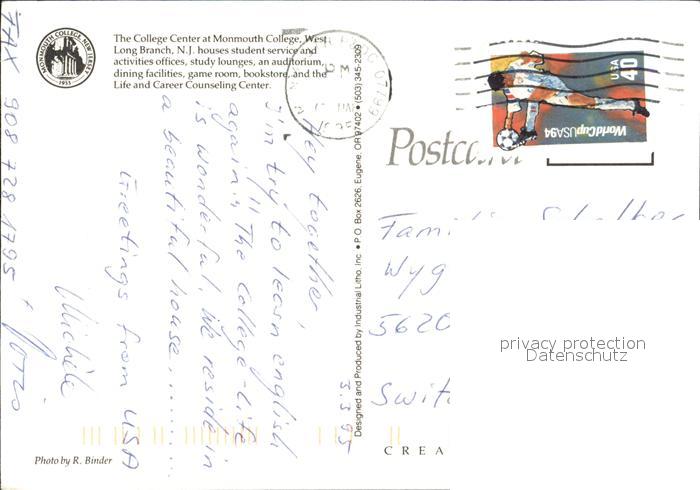 MONMOUTH COLLEGE, NEW JERSEY
1933
The College Center at Monmouth College, West
Long Branch, N.J. houses student service and
activities offices, study lounges, an auditorium,
dining facilities, game room, bookstore, and the
Life and Career Counseling Center.
3.3.95
Hey together,
I'm try to learn english
again!! The college-life
is wonderful. We reside in
a beautiful house..........
Greetings from USA
FAX 908 728 1795
Photo by R. Binder
Designed and Produced by Industrial Litho, Inc. • P.O. Box 2626, Eugene, OR 97402 • (503) 345-2309
PM
1995
USA
40
WorldCupUSA94
Postcard
Fami
Wyg
5620
Swit
CREA
privacy protection
Datenschutz